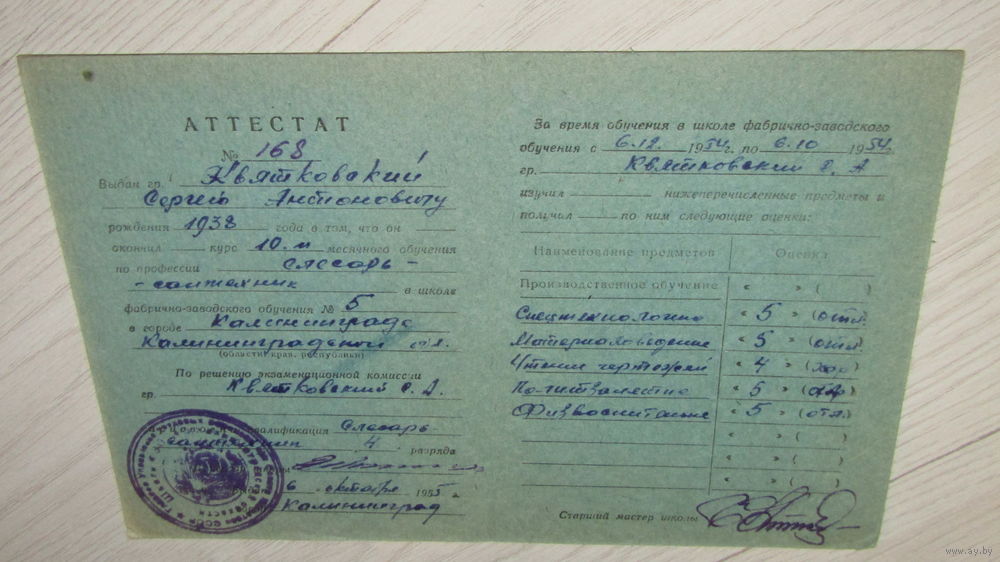 АТТЕСТАТ
№ 168
Выдан гр. Квятковский
Сергею Антоновичу
рождения 1938 года в том, что он
окончил курс 10-и месячного обучения
по профессии слесарь-
-сантехник в школе
фабрично-заводского обучения № 5
в городе Калининграде
Калининградской обл.
(области, края, республики)
По решению экзаменационной комиссии
гр. Квятковский С. А.
квалификация Слесарь
сантехник 4 разряда
6 октября 1955 г.
Калининград
За время обучения в школе фабрично-заводского
обучения с 6.12. 1954 г. по 6.10 1954 г.
гр. Квятковский С. А
изучил нижеперечисленные предметы и
получил по ним следующие оценки:
Наименование предметов Оценки
Производственное обучение « » ( )
Спецтехнология « 5 » (отл.)
Материаловедение « 5 » (отл.)
Чтение чертежей « 4 » (хор)
Политзанятие « 5 »
Физвоспитание « 5 » (отл.)
« » ( )
« » ( )
« » ( )
Старший мастер школы
www.ay.by